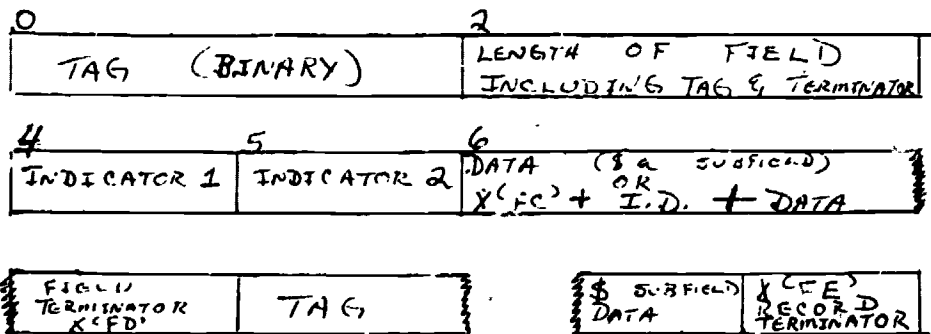 0 2
TAG (BINARY)
LENGTH OF FIELD
INCLUDING TAG & TERMINATOR
4 5 6
INDICATOR 1
INDICATOR 2
DATA ($a SUBFIELD)
OR
X'FC' + I.D. + DATA
FIELD
TERMINATOR
X'FD'
TAG
$ SUBFIELD
DATA
X'FE'
RECORD
TERMINATOR